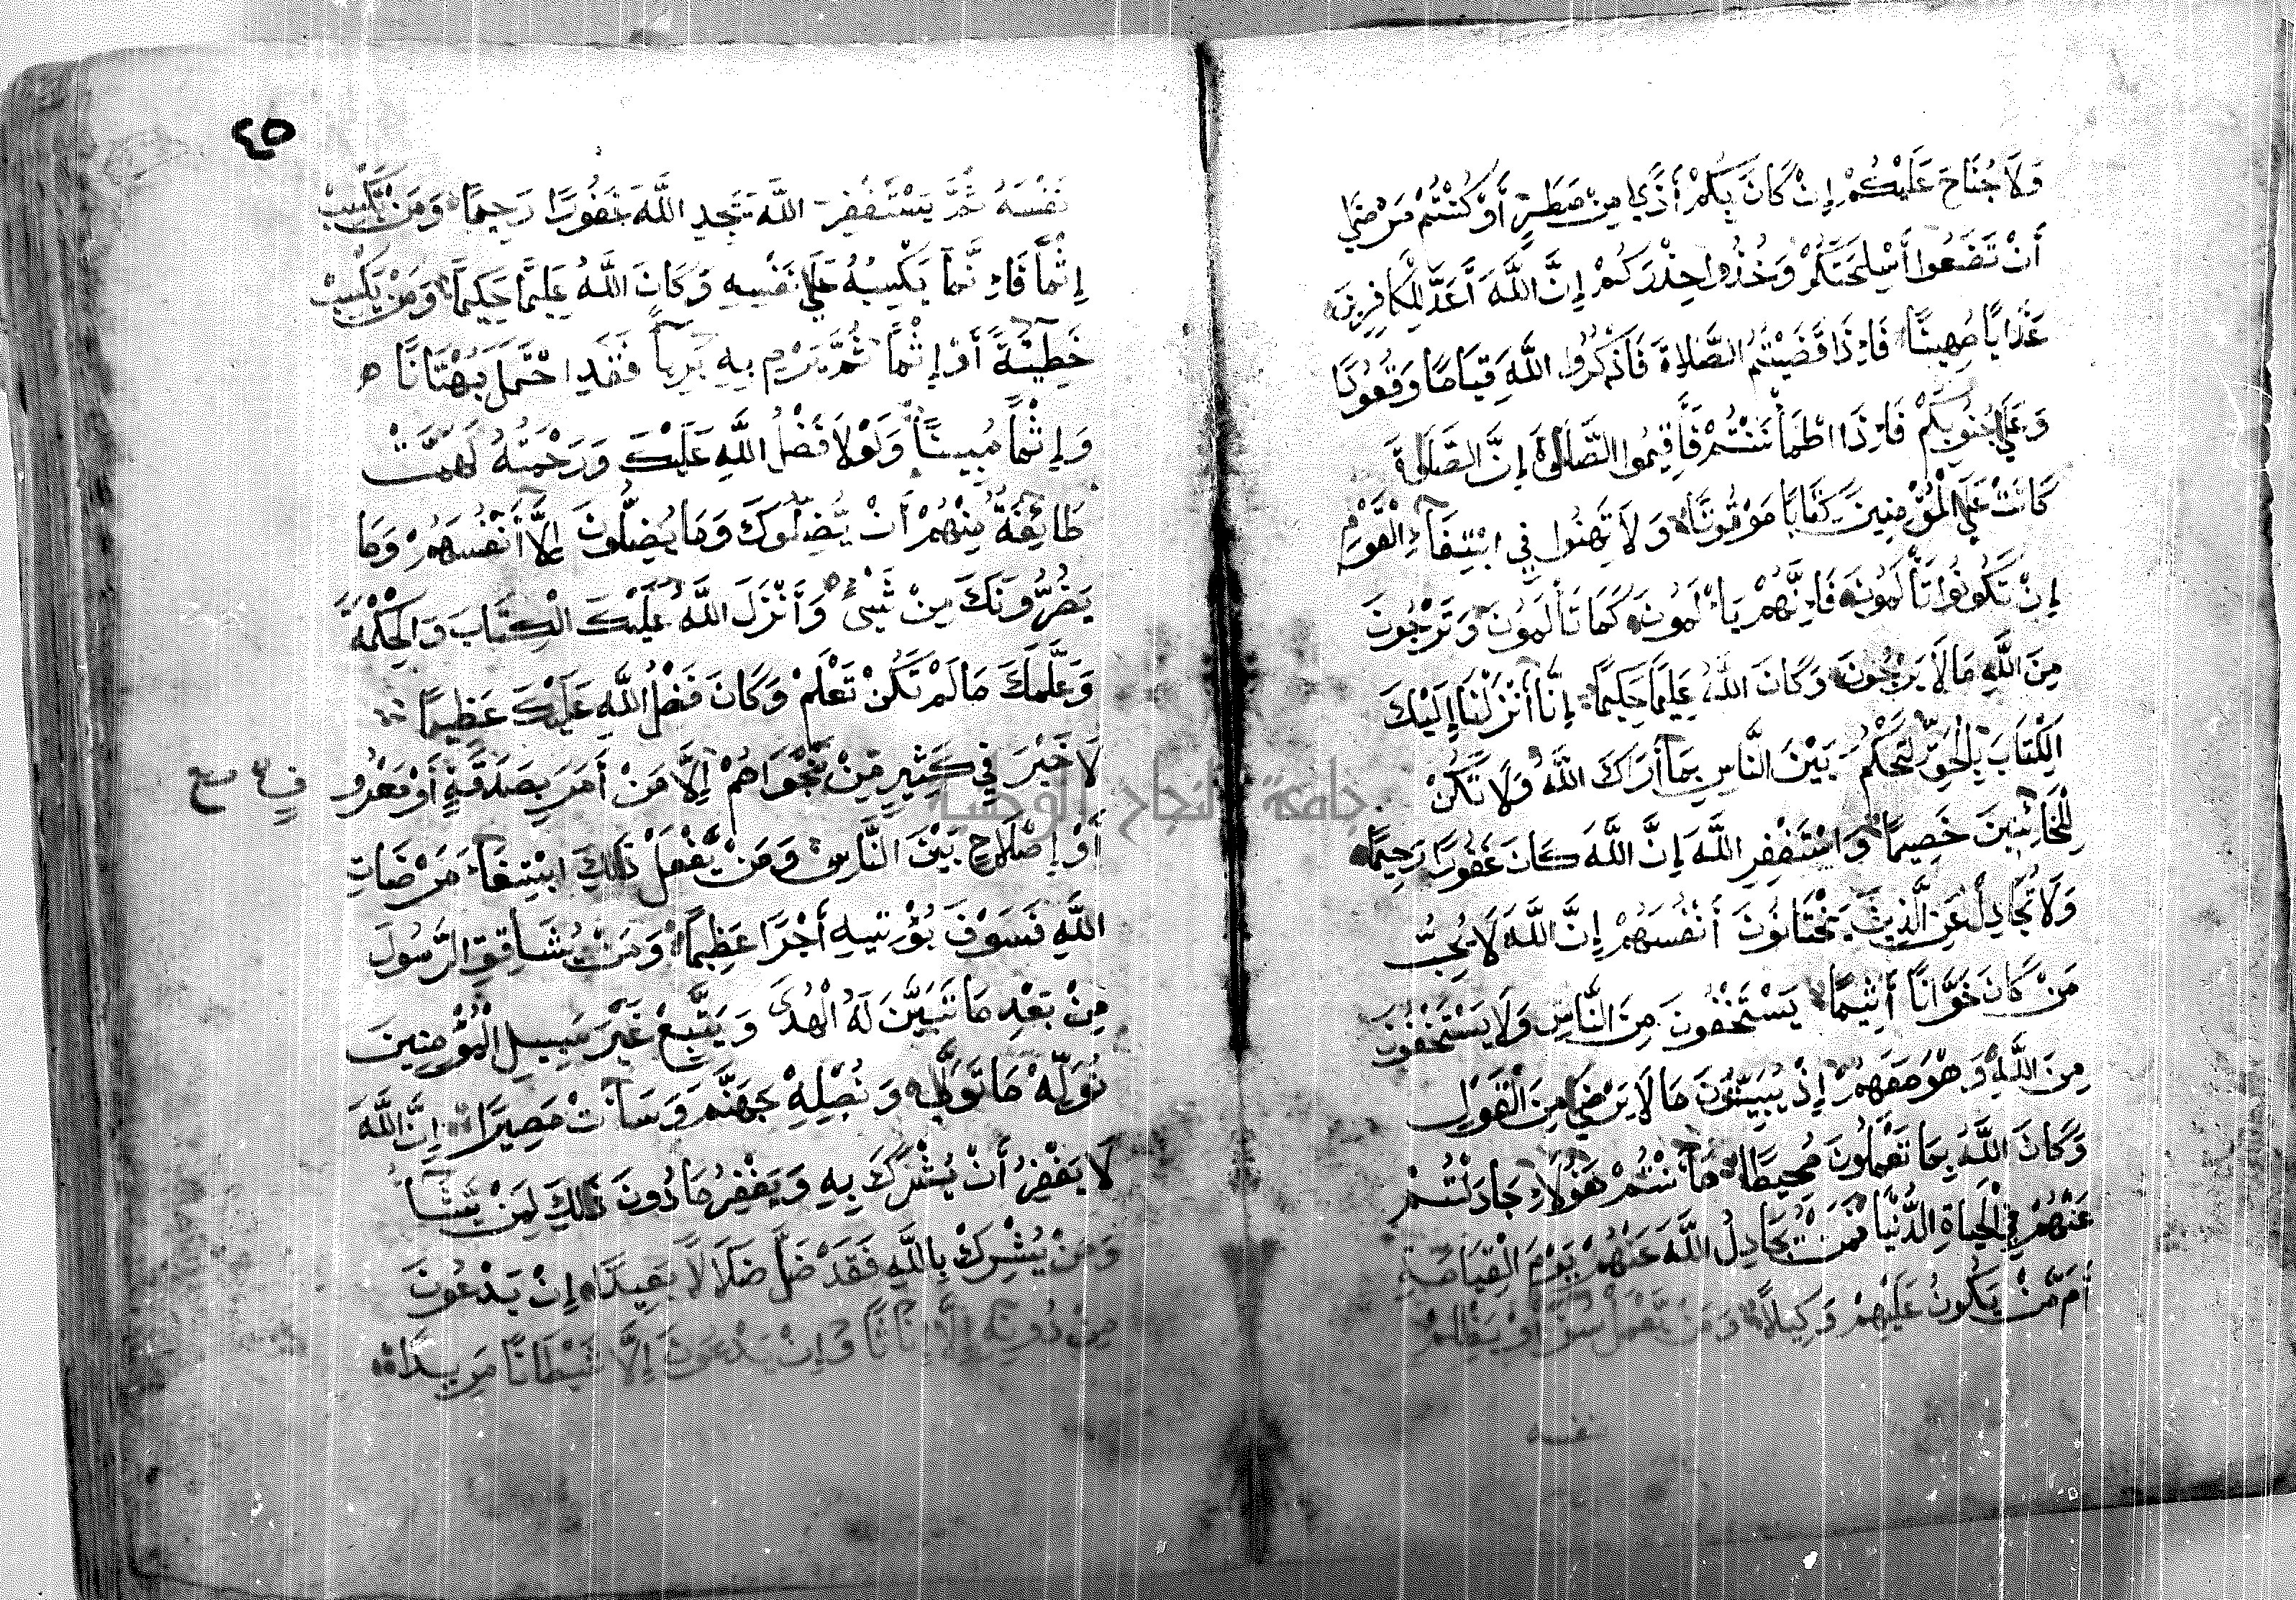 وَلَا جُنَاحَ عَلَيْكُمْ إِنْ كَانَ بِكُمْ أَذًى مِنْ مَطَرٍ أَوْ كُنْتُمْ مَرْضَى
أَنْ تَضَعُوا أَسْلِحَتَكُمْ وَخُذُوا حِذْرَكُمْ إِنَّ اللَّهَ أَعَدَّ لِلْكَافِرِينَ
عَذَابًا مُهِينًا فَإِذَا قَضَيْتُمُ الصَّلَاةَ فَاذْكُرُوا اللَّهَ قِيَامًا وَقُعُودًا
وَعَلَى جُنُوبِكُمْ فَإِذَا اطْمَأْنَنْتُمْ فَأَقِيمُوا الصَّلَوٰةَ إِنَّ الصَّلَوٰةَ
كَانَتْ عَلَى الْمُؤْمِنِينَ كِتَابًا مَوْقُوتًا وَلَا تَهِنُوا فِي ابْتِغَاءِ الْقَوْمِ
إِنْ تَكُونُوا تَأْلَمُونَ فَإِنَّهُمْ يَأْلَمُونَ كَمَا تَأْلَمُونَ وَتَرْجُونَ
مِنَ اللَّهِ مَا لَا يَرْجُونَ وَكَانَ اللَّهُ عَلِيمًا حَكِيمًا إِنَّا أَنْزَلْنَا إِلَيْكَ
الْكِتَابَ بِالْحَقِّ لِتَحْكُمَ بَيْنَ النَّاسِ بِمَا أَرَاكَ اللَّهُ وَلَا تَكُنْ
لِلْخَائِنِينَ خَصِيمًا وَاسْتَغْفِرِ اللَّهَ إِنَّ اللَّهَ كَانَ غَفُورًا رَحِيمًا
وَلَا تُجَادِلْ عَنِ الَّذِينَ يَخْتَانُونَ أَنْفُسَهُمْ إِنَّ اللَّهَ لَا يُحِبُّ
مَنْ كَانَ خَوَّانًا أَثِيمًا يَسْتَخْفُونَ مِنَ النَّاسِ وَلَا يَسْتَخْفُونَ
مِنَ اللَّهِ وَهُوَ مَعَهُمْ إِذْ يُبَيِّتُونَ مَا لَا يَرْضَى مِنَ الْقَوْلِ
وَكَانَ اللَّهُ بِمَا تَعْمَلُونَ مُحِيطًا هَا أَنْتُمْ هَؤُلَاءِ جَادَلْتُمْ
عَنْهُمْ فِي الْحَيَاةِ الدُّنْيَا فَمَنْ يُجَادِلُ اللَّهَ عَنْهُمْ يَوْمَ الْقِيَامَةِ
أَمْ مَّنْ يَكُونُ عَلَيْهِمْ وَكِيلًا وَمَنْ يَعْمَلْ سُوءًا أَوْ يَظْلِمْ
نفسه
٤٥
نَفْسَهُ ثُمَّ يَسْتَغْفِرِ اللَّهَ يَجِدِ اللَّهَ غَفُورًا رَحِيمًا وَمَنْ يَكْسِبْ
إِثْمًا فَإِنَّمَا يَكْسِبُهُ عَلَى نَفْسِهِ وَكَانَ اللَّهُ عَلِيمًا حَكِيمًا وَمَنْ يَكْسِبْ
خَطِيئَةً أَوْ إِثْمًا ثُمَّ يَرْمِ بِهِ بَرِيئًا فَقَدِ احْتَمَلَ بُهْتَانًا
وَإِثْمًا مُبِينًا وَلَوْلَا فَضْلُ اللَّهِ عَلَيْكَ وَرَحْمَتُهُ لَهَمَّتْ
طَائِفَةٌ مِنْهُمْ أَنْ يُضِلُّوكَ وَمَا يُضِلُّونَ إِلَّا أَنْفُسَهُمْ وَمَا
يَضُرُّونَكَ مِنْ شَيْءٍ وَأَنْزَلَ اللَّهُ عَلَيْكَ الْكِتَابَ وَالْحِكْمَةَ
وَعَلَّمَكَ مَا لَمْ تَكُنْ تَعْلَمْ وَكَانَ فَضْلُ اللَّهِ عَلَيْكَ عَظِيمًا
لَا خَيْرَ فِي كَثِيرٍ مِنْ نَجْوَاهُمْ إِلَّا مَنْ أَمَرَ بِصَدَقَةٍ أَوْ مَعْرُو
فٍ
أَوْ إِصْلَاحٍ بَيْنَ النَّاسِ وَمَنْ يَفْعَلْ ذَلِكَ ابْتِغَاءَ مَرْضَاتِ
اللَّهِ فَسَوْفَ نُؤْتِيهِ أَجْرًا عَظِيمًا وَمَنْ يُشَاقِقِ الرَّسُولَ
مِنْ بَعْدِ مَا تَبَيَّنَ لَهُ الْهُدَى وَيَتَّبِعْ غَيْرَ سَبِيلِ الْمُؤْمِنِينَ
نُوَلِّهِ مَا تَوَلَّى وَنُصْلِهِ جَهَنَّمَ وَسَاءَتْ مَصِيرًا إِنَّ اللَّهَ
لَا يَغْفِرُ أَنْ يُشْرَكَ بِهِ وَيَغْفِرُ مَا دُونَ ذَلِكَ لِمَنْ يَشَاءُ
وَمَنْ يُشْرِكْ بِاللَّهِ فَقَدْ ضَلَّ ضَلَالًا بَعِيدًا إِنْ يَدْعُونَ
مِنْ دُونِهِ إِلَّا إِنَاثًا وَإِنْ يَدْعُونَ إِلَّا شَيْطَانًا مَرِيدًا
جامعة النجاح الوطنية